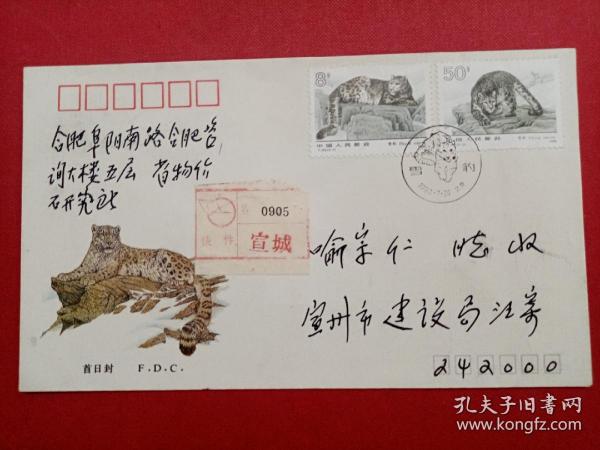 合肥阜阳南路合肥咨
询大楼五层 省物价
研究所
8分
50分
中国人民邮政
中国人民邮政
雪豹
0905
快件
宣城
喻宗仁 收
宣州市建设局江寄
242000
首日封 F.D.C.
孔夫子旧书网
www.kongfz.com